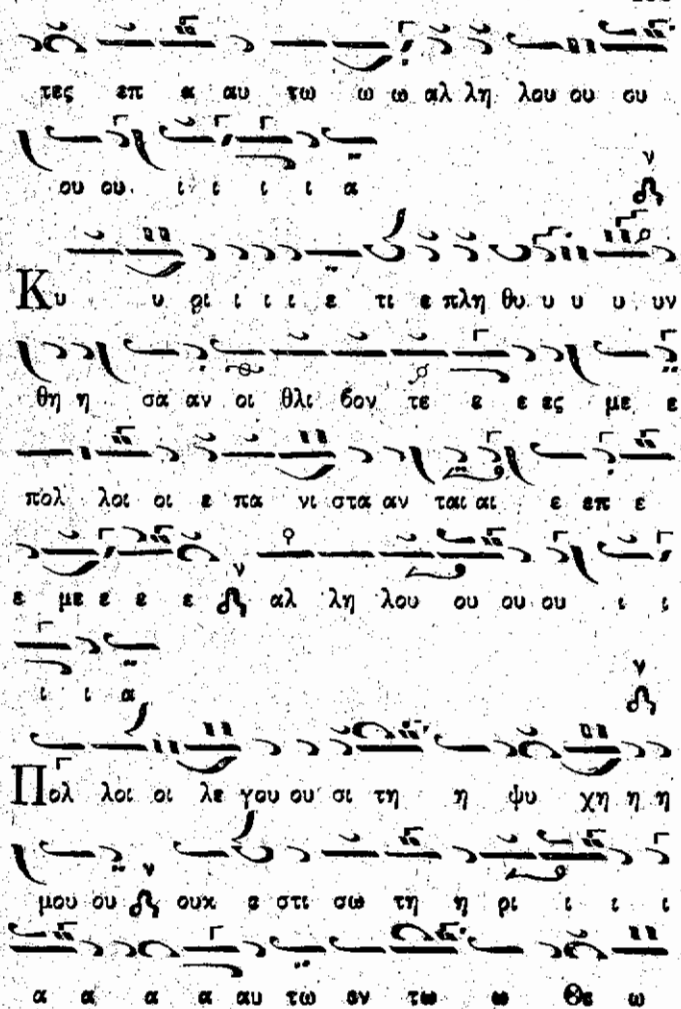 τες επ α αυ τω ω ω αλ λη λου ου ου
ου ου ι ι ι ι α
ν
Κυ υ ρι ι ι ι ε τι ε πλη θυ υ υ υ υν
θη η σα αν οι θλι βον τε ε ε ες με ε
πολ λοι οι ε πα νι στα αν ται αι ε επ ε
ε με ε ε ε ν αλ λη λου ου ου ου ι ι
ι ι α
ν
Πολ λοι οι λε γου ου σι τη η ψυ χη η η
μου ου ν ουκ ε στι σω τη η ρι ι ι ι
α α α α αυ τω εν τω ω Θε ω